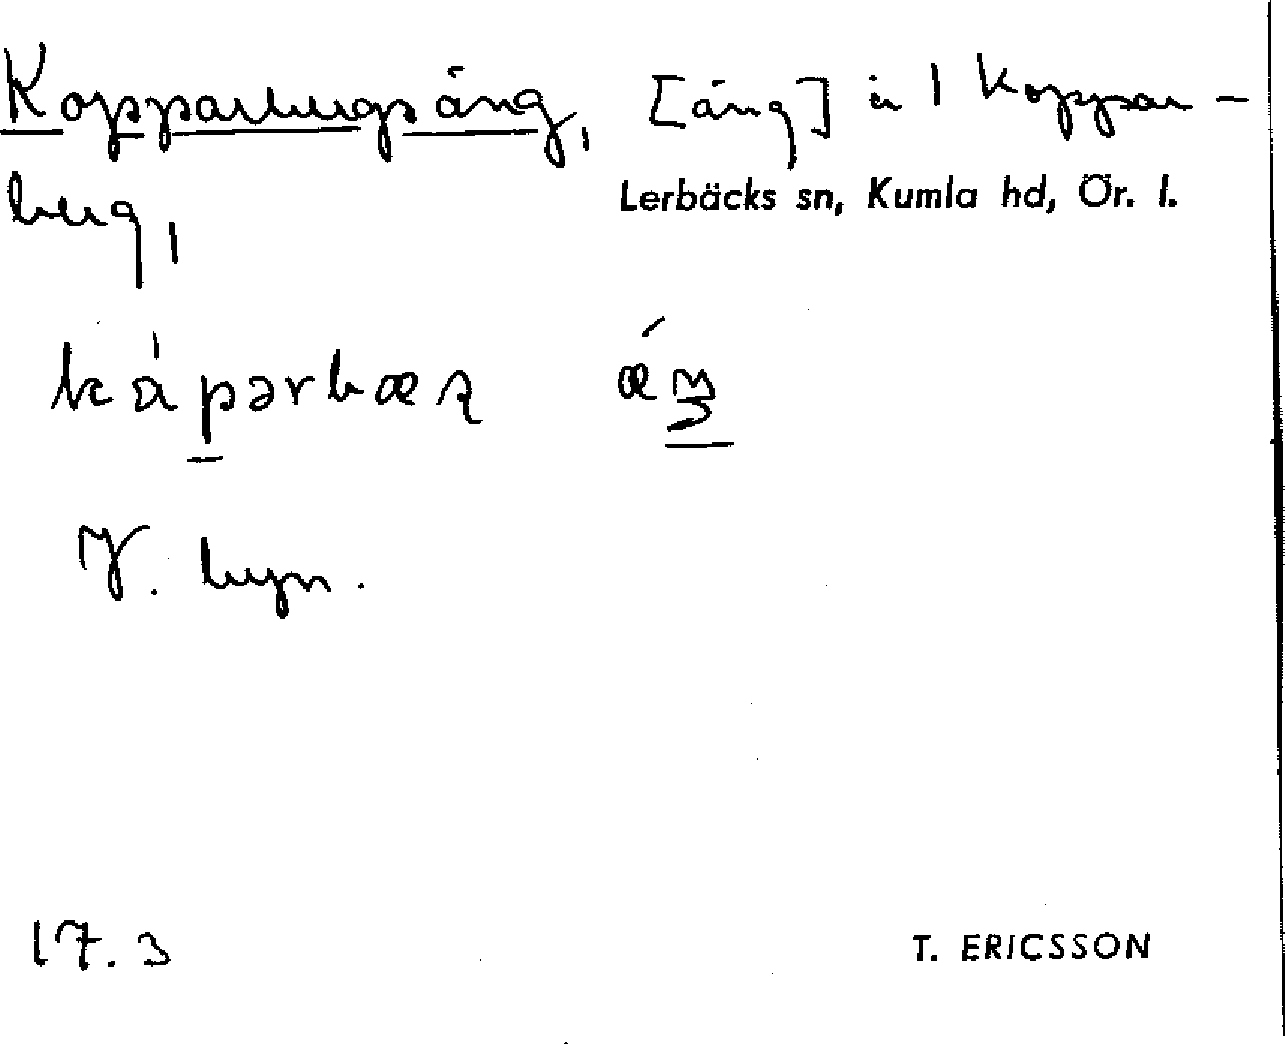 Kopparbergsäng, [äng] i 1 Koppar-
berg,
Lerbäcks sn, Kumla hd, Ör. l.
V. byn.
17.3
T. ERICSSON